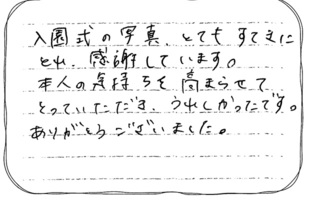 入園式の写真、とてもすてきに
とれ、感謝しています。
本人の気持ちを高まらせて
とっていただき、うれしかったです。
ありがとうございました。